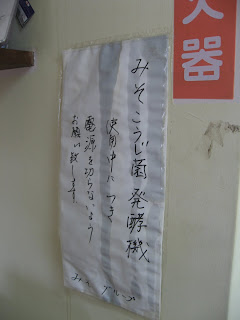 みそこうじ菌発酵機
使用中につき
電源を切らないよう
お願い致します。
みそグループ
火器